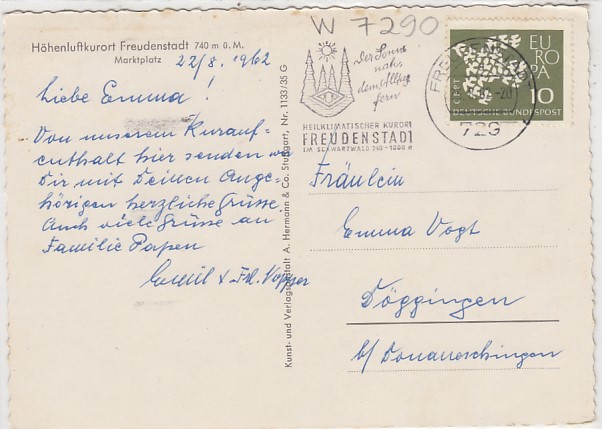 W 7290
Höhenluftkurort Freudenstadt 740 m ü. M.
Marktplatz
22/8. 1962
Liebe Emma!
Von unserem Kurauf-
enthalt hier senden wir
Dir mit Deinen Ange-
hörigen herzliche Grüsse
Auch viele Grüsse an
Familie Papen
Emil & Frl.
Kunst- und Verlagsanstalt A. Hermann & Co. Stuttgart, Nr. 1133/35 G
Der Sonne
nah,
dem Alltag
fern
HEILKLIMATISCHER KURORT
FREUDENSTADT
IM SCHWARZWALD 740-1000 m
FREUDENSTADT
729
EUROPA
CEPT
10
DEUTSCHE BUNDESPOST
Fräulein
Emma Vogt
Döggingen
b/ Donaueschingen